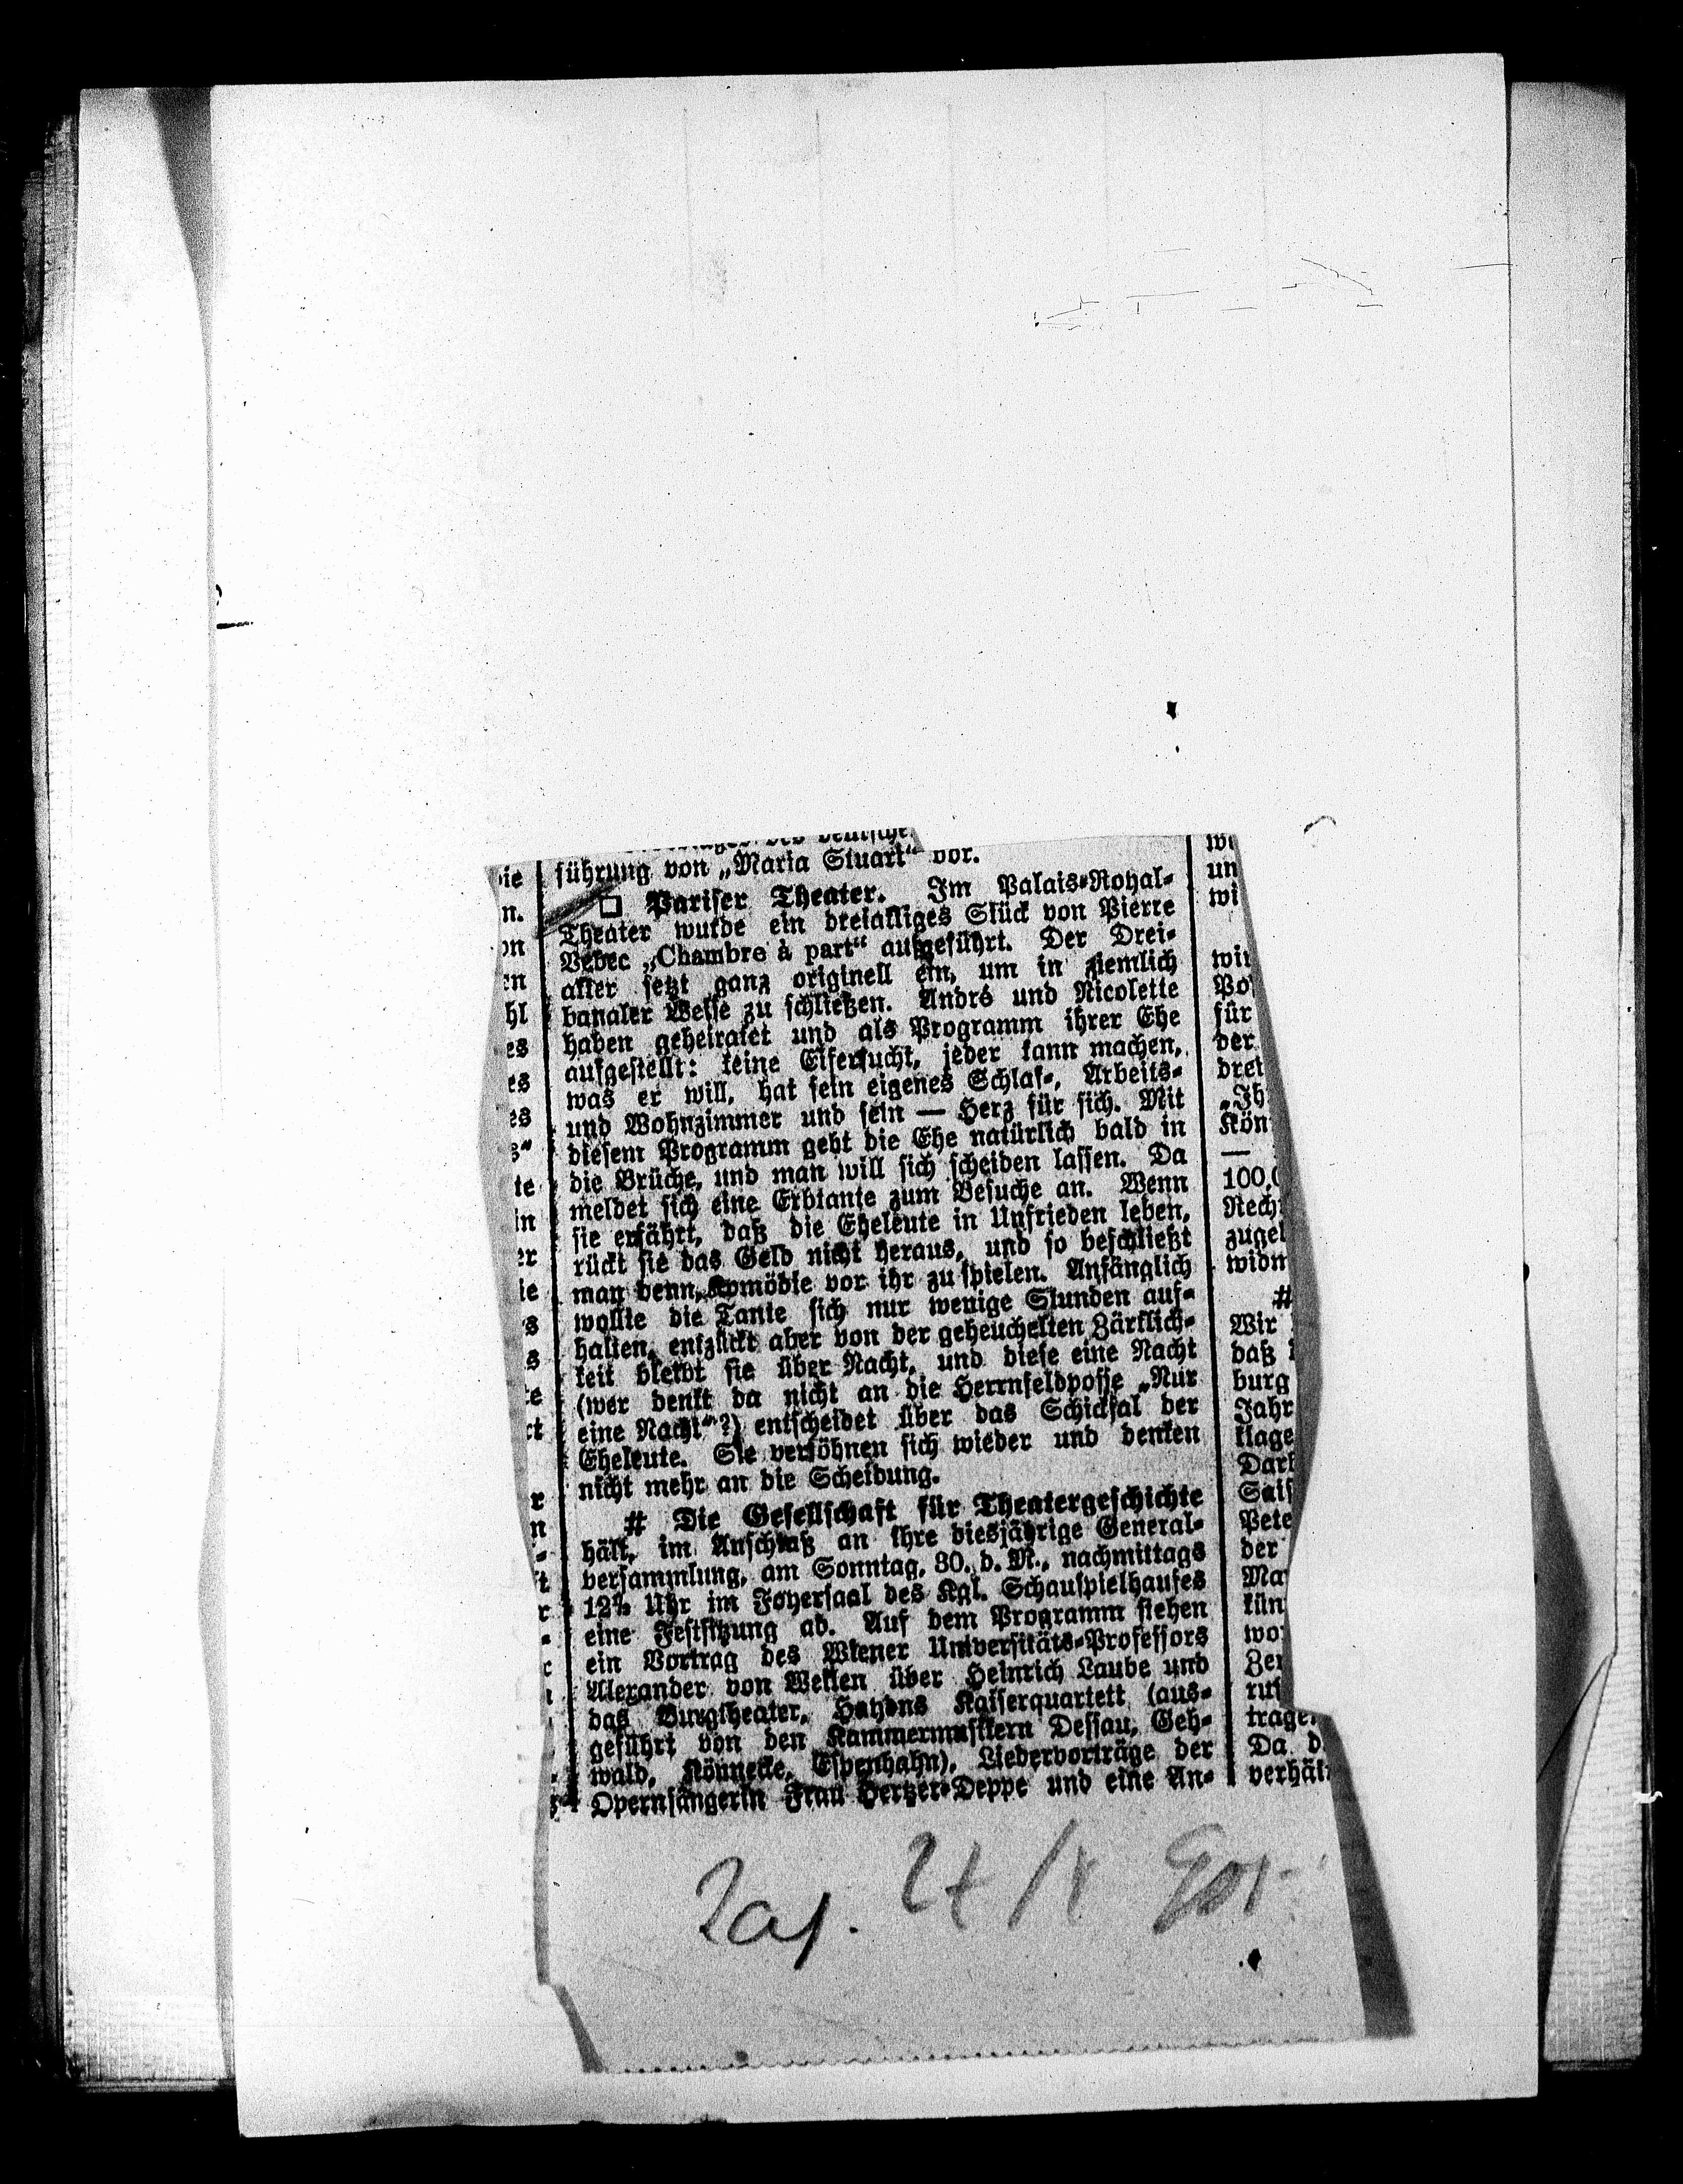 führung von „Maria Stuart“ vor.
□ Pariser Theater. Im Palais-Royal-
Theater wurde ein dreiaktiges Stück von Pierre
Veber „Chambre à part“ aufgeführt. Der Drei-
akter setzt ganz originell ein, um in ziemlich
banaler Weise zu schließen. André und Nicolette
haben geheiratet und als Programm ihrer Ehe
aufgestellt: keine Eifersucht, jeder kann machen,
was er will, hat sein eigenes Schlaf-, Arbeits-
und Wohnzimmer und sein — Herz für sich. Mit
diesem Programm geht die Ehe natürlich bald in
die Brüche, und man will sich scheiden lassen. Da
meldet sich eine Erbtante zum Besuche an. Wenn
sie erfährt, daß die Eheleute in Unfrieden leben,
rückt sie das Geld nicht heraus, und so beschließt
man denn, Komödie vor ihr zu spielen. Anfänglich
wollte die Tante sich nur wenige Stunden auf-
halten, entzückt aber von der geheuchelten Zärtlich-
keit bleibt sie über Nacht, und diese eine Nacht
(wer denkt da nicht an die Herrnfeldposse „Nur
eine Nacht“?) entscheidet über das Schicksal der
Eheleute. Sie versöhnen sich wieder und denken
nicht mehr an die Scheidung.
# Die Gesellschaft für Theatergeschichte
hält, im Anschluß an ihre diesjährige General-
versammlung, am Sonntag, 30. d. M., nachmittags
Uhr im Foyersaal des Kgl. Schauspielhauses
eine Festsitzung ab. Auf dem Programm stehen
ein Vortrag des Wiener Universitäts-Professors
Alexander von Weilen über Heinrich Laube und
das Burgtheater, Haydns Kaiserquartett (aus-
geführt von den Kammermusikern Dessau, Geh-
wald, Könnecke, Espenhahn), Liedervorträge der
Opernsängerin Frau Hertzer-Deppe und eine An-
wi
un
wi
wir
Po
für
der
drei
„Ih
Kön
—
100,0
Rech
zugel
widm
#
Wir
daß
burg
Jahr
klage
Dar
Sais
Pete
der
Ma
kün
wo
Zei
ruf
trage
Da d
verhäl